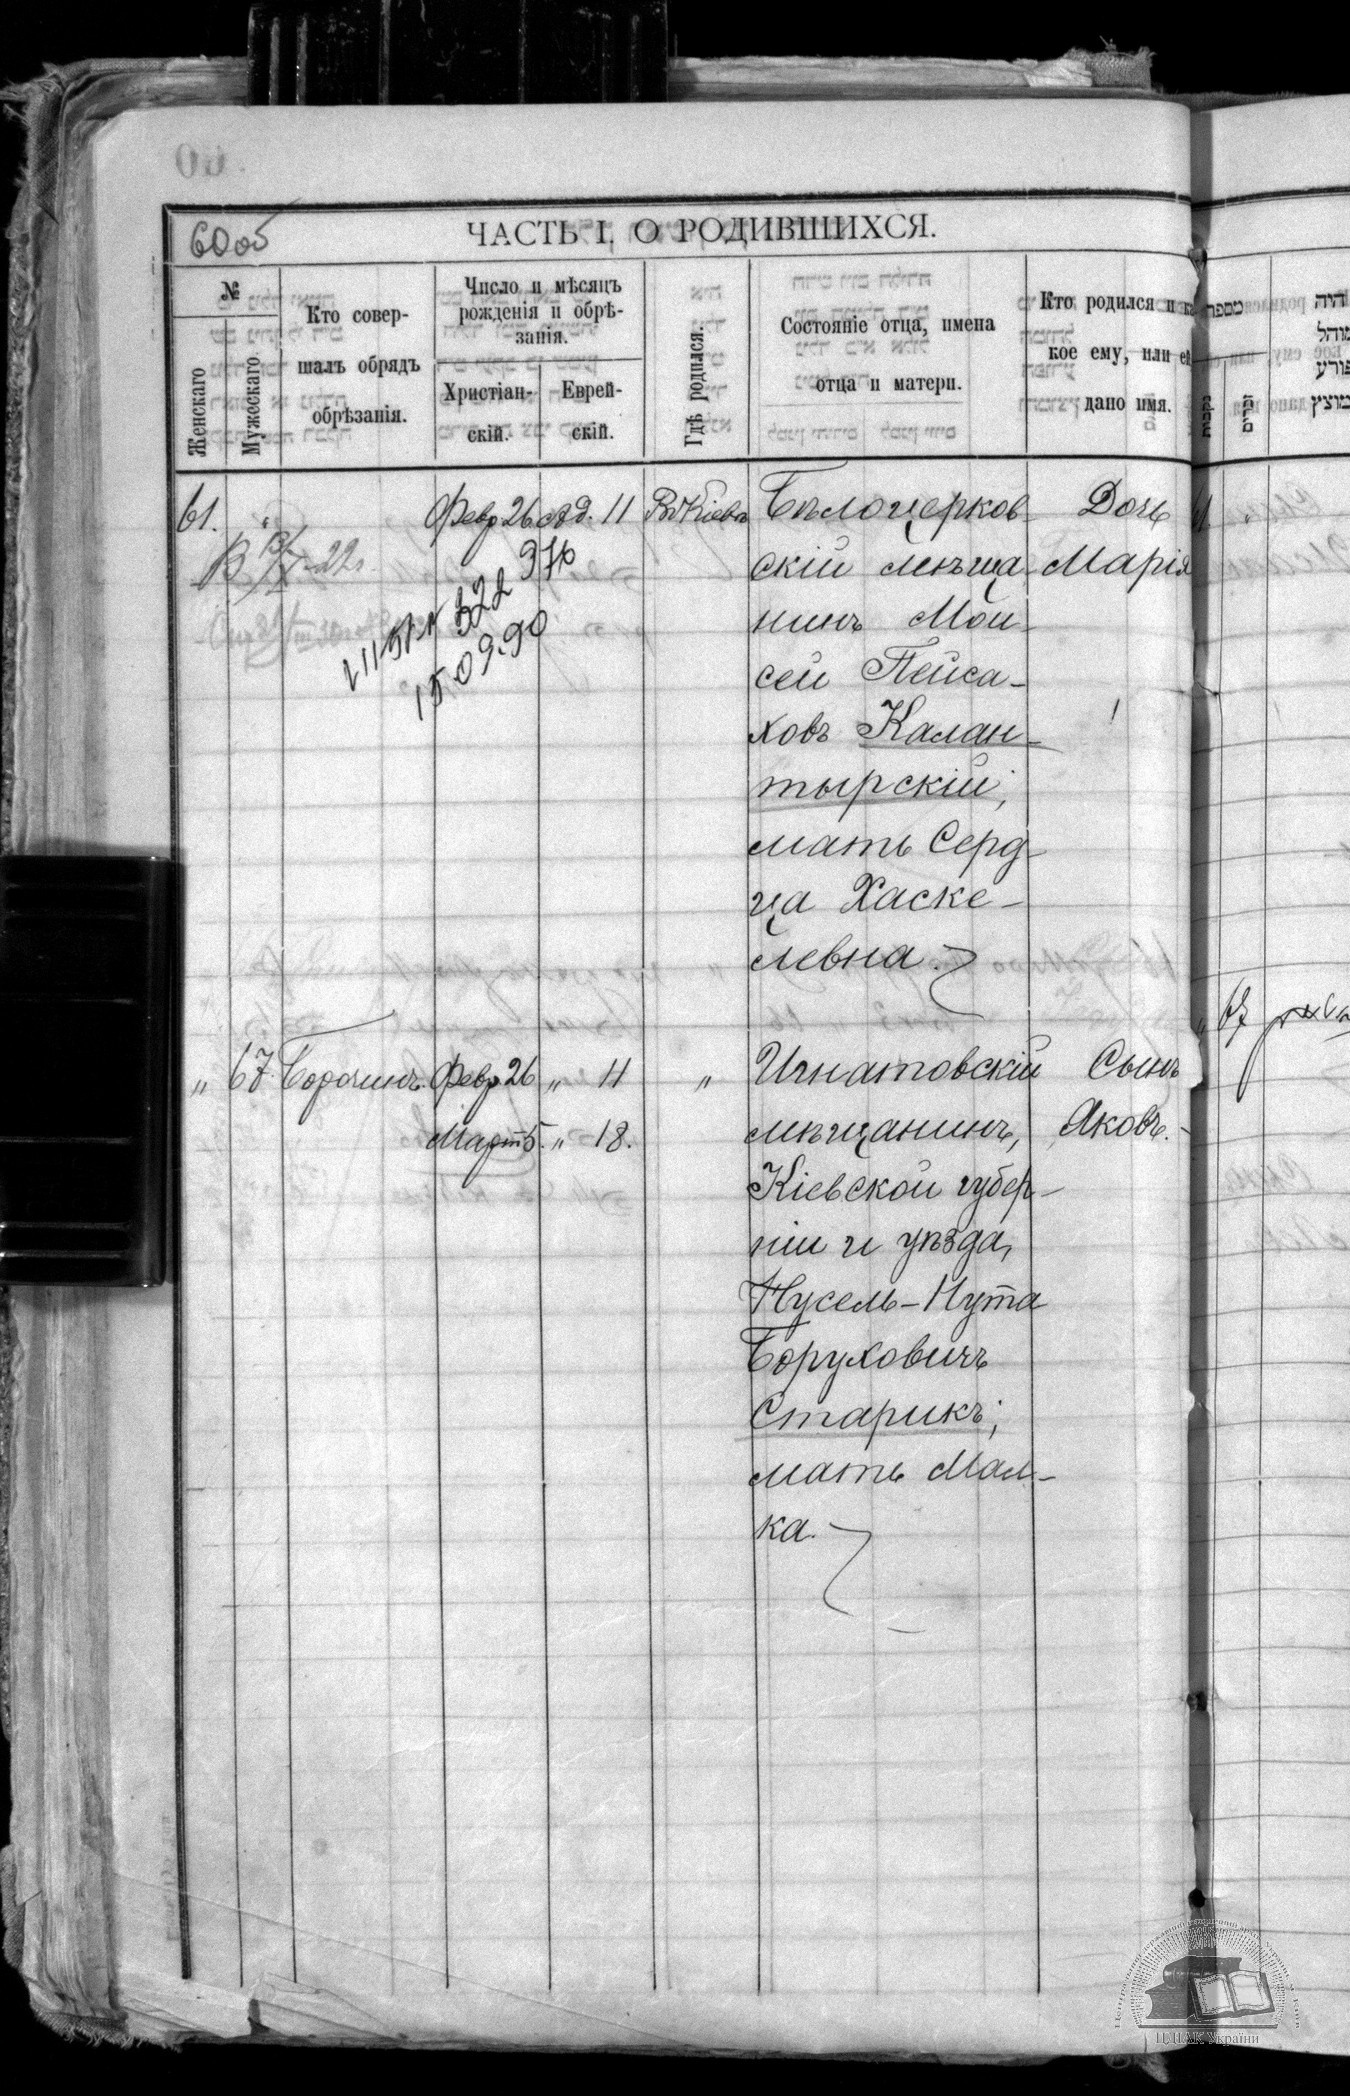 60 об
ЧАСТЬ I, О РОДИВШИХСЯ.
№
Женскаго
Мужескаго.
Кто совер-
шалъ обрядъ
обрѣзанія.
Число и мѣсяцъ
рожденія и обрѣ-
занія.
Христіан-
скій.
Еврей-
скій.
Гдѣ родился.
Состояніе отца, имена
отца и матери.
Кто родился и ка
кое ему, или ей
дано имя.
מספר
נקבות
זכרים
היה
מוהל
פורע
מוצץ
61. " Февр 26 Ад. 11 Въ Кіевѣ Бѣлоцерков-
скій мѣща
нинъ Мои-
сей Пейса-
ховъ Калан-
тырскій;
мать Серд-
ца Хаске-
левна.
Дочь
Марія
322 376
15.09.90
" 67 Борочинъ Февр 26 " 11 "
Март 5. " 18.
Игнатовскій
мѣщанинъ,
Кіевской губер-
ніи и уѣзда,
Нусель-Нута
Боруховичъ
Старикъ;
мать Мал-
ка.
Сынъ
Яковъ.
61.
" 67
ЦДІАК України